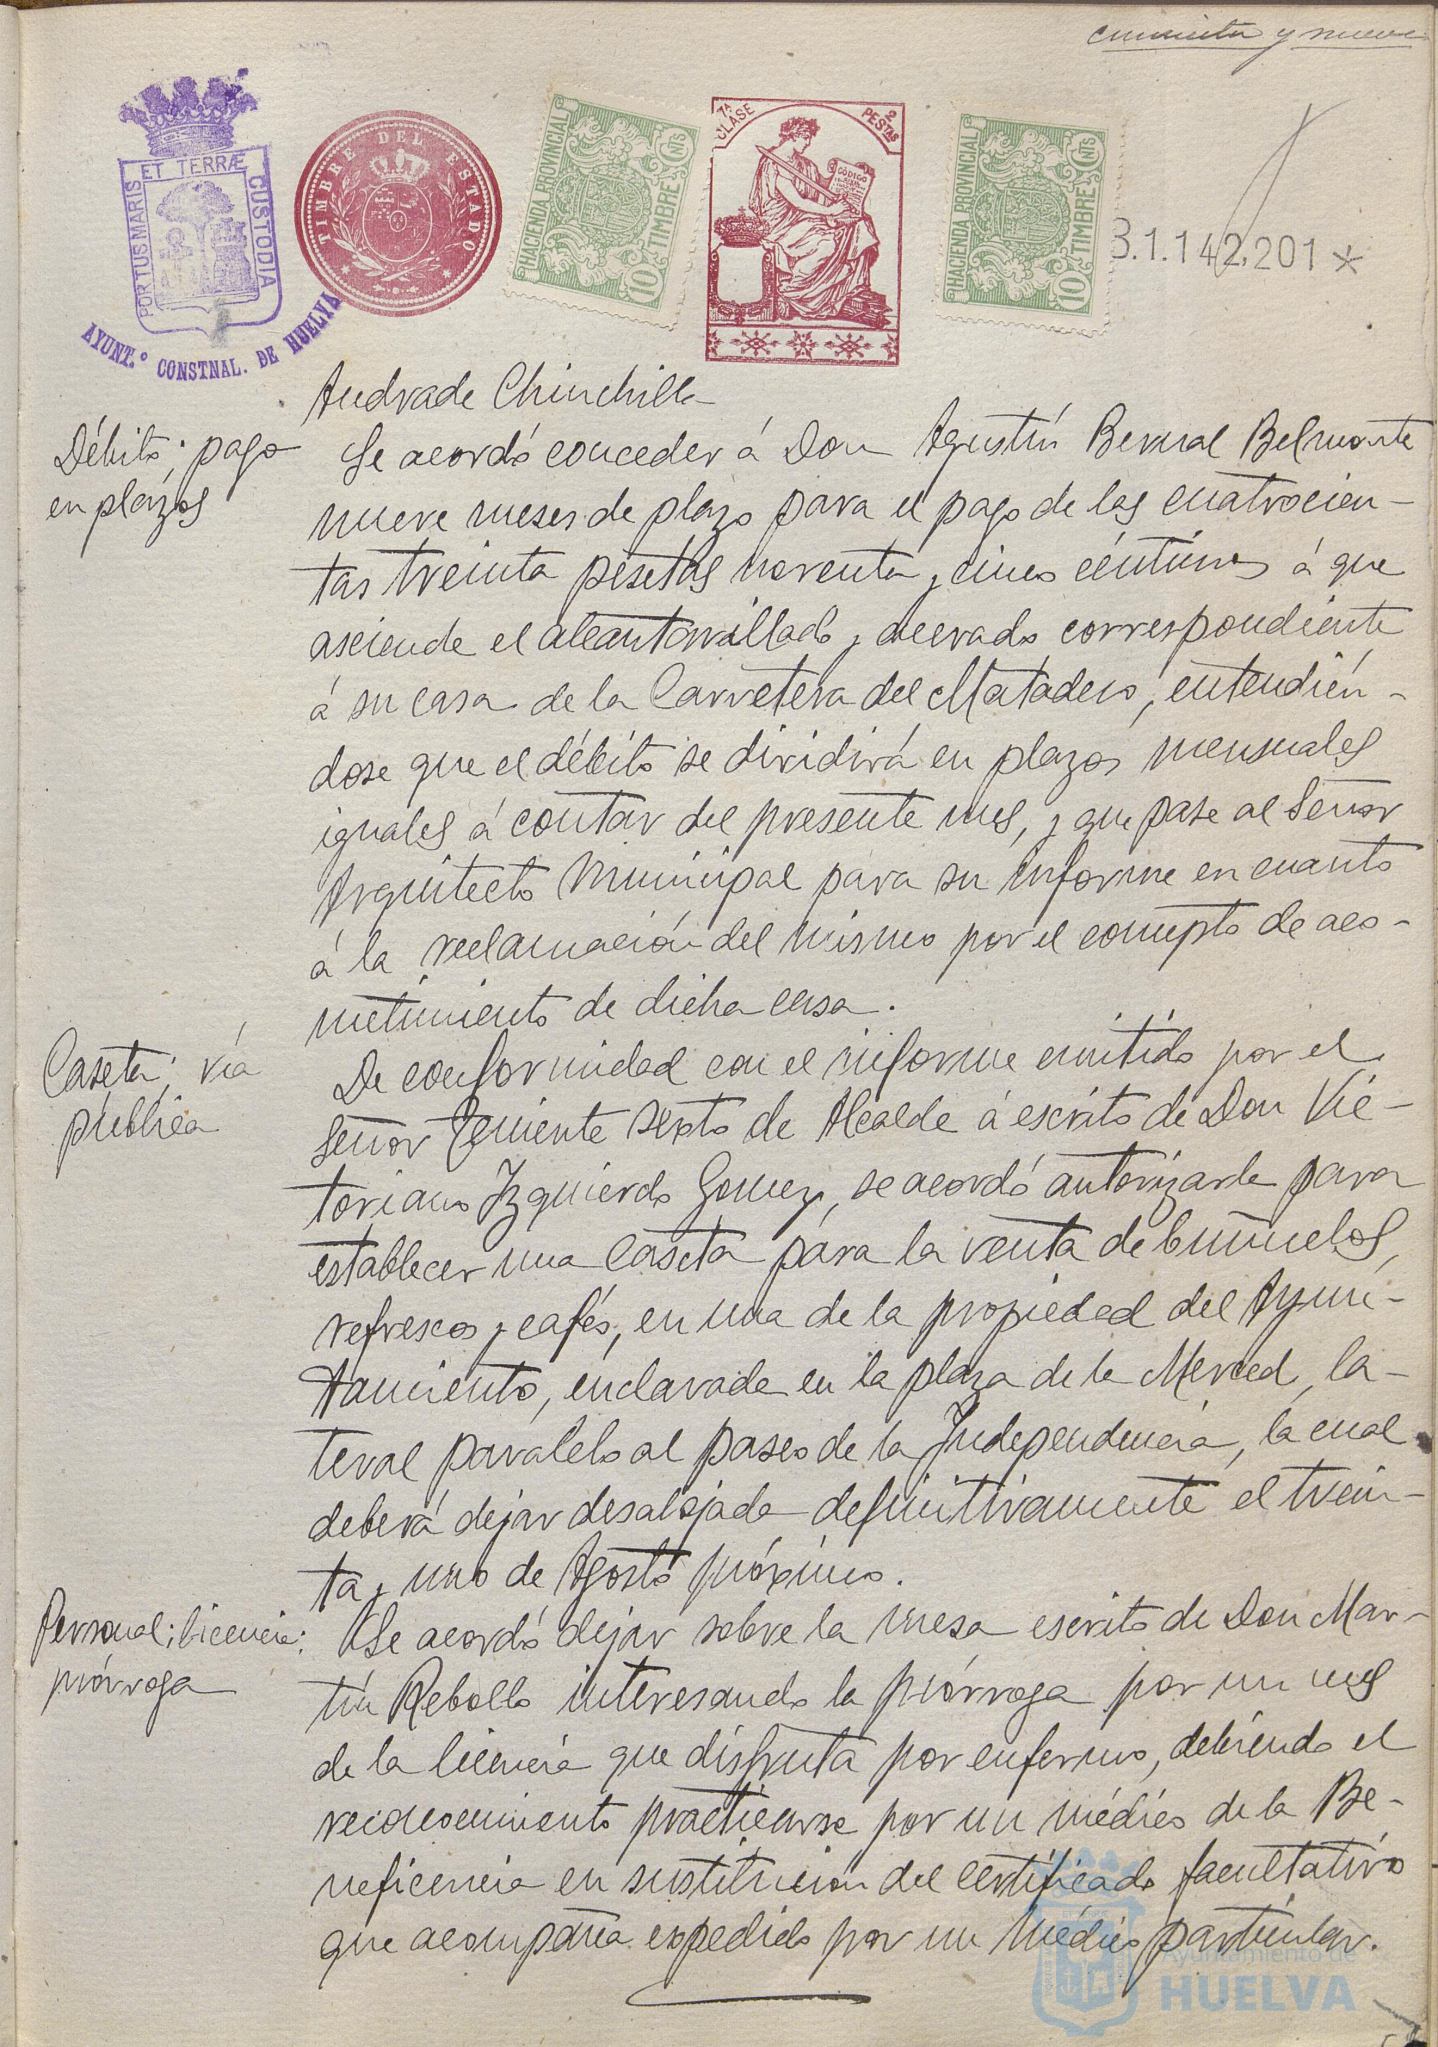 cincuenta y nueve
PORTUS MARIS ET TERRÆ CUSTODIA
AYUNT.º CONSTNAL. DE HUELVA
TIMBRE DEL ESTADO
HACIENDA PROVINCIAL
10 CNTS
TIMBRE
7ª CLASE
2 PESTAS
CODIGO
HACIENDA PROVINCIAL
10 CNTS
TIMBRE
B.1.142.201 *
Andrade Chinchilla
Débito; pago
en plazos
Se acordó conceder á Don Agustín Bernal Belmonte
nueve meses de plazo para el pago de las cuatrocien-
tas treinta pesetas noventa y cinco céntimos á que
asciende el alcantarillado y acerado correspondiente
á su casa de la Carretera del Matadero, entendién-
dose que el débito se dividirá en plazos mensuales
iguales á contar del presente mes, y que pase al Señor
Arquitecto Municipal para su informe en cuanto
á la reclamación del mismo por el concepto de aco-
metimiento de dicha casa.
Caseta; vía
pública
De conformidad con el informe emitido por el
Señor Teniente sexto de Alcalde á escrito de Don Vic-
toriano Izquierdo Gomez, se acordó autorizarle para
establecer una caseta para la venta de buñuelos,
refrescos y cafés, en una de la propiedad del Ayun-
tamiento, enclavada en la plaza de la Merced, la-
teral paralelo al paseo de la Independencia, la cual
deberá dejar desalojada definitivamente el trein-
ta y uno de Agosto próximo.
Personal; licencia;
prórroga
Se acordó dejar sobre la mesa escrito de Don Mar-
tín Rebollo interesando la prórroga por un mes
de la licencia que disfruta por enfermo, debiendo el
reconocimiento practicarse por un médico de la Be-
neficencia en sustitucion del certificado facultativo
que acompaña expedido por un médico particular.
Ayuntamiento de
HUELVA